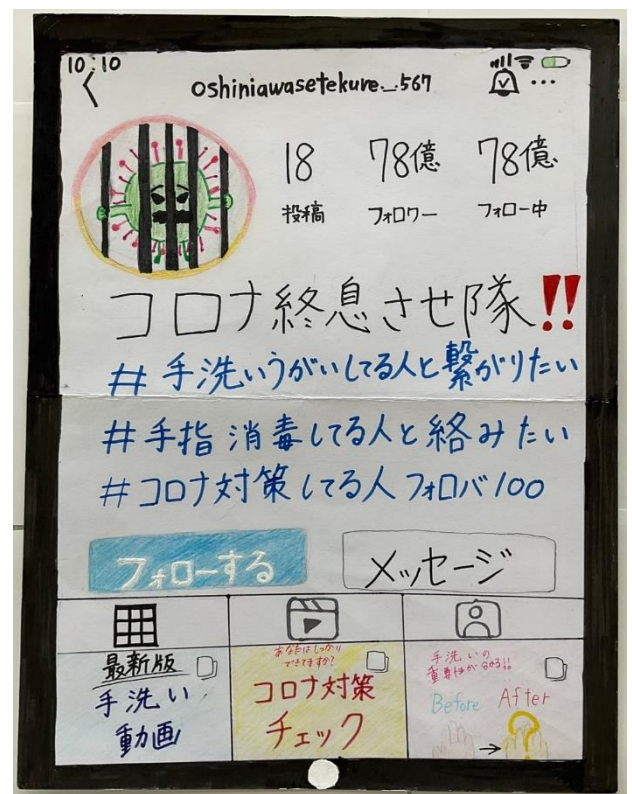 10:10
oshiniawasetekure._.567
18 78億 78億
投稿 フォロワー フォロー中
コロナ終息させ隊!!
#手洗いうがいしてる人と繋がりたい
#手指消毒してる人と絡みたい
#コロナ対策してる人フォロバ100
フォローする メッセージ
最新版
手洗い
動画
あなたはしっかり
できてますか?
コロナ対策
チェック
手洗いの
重要性が分かる!!
Before After